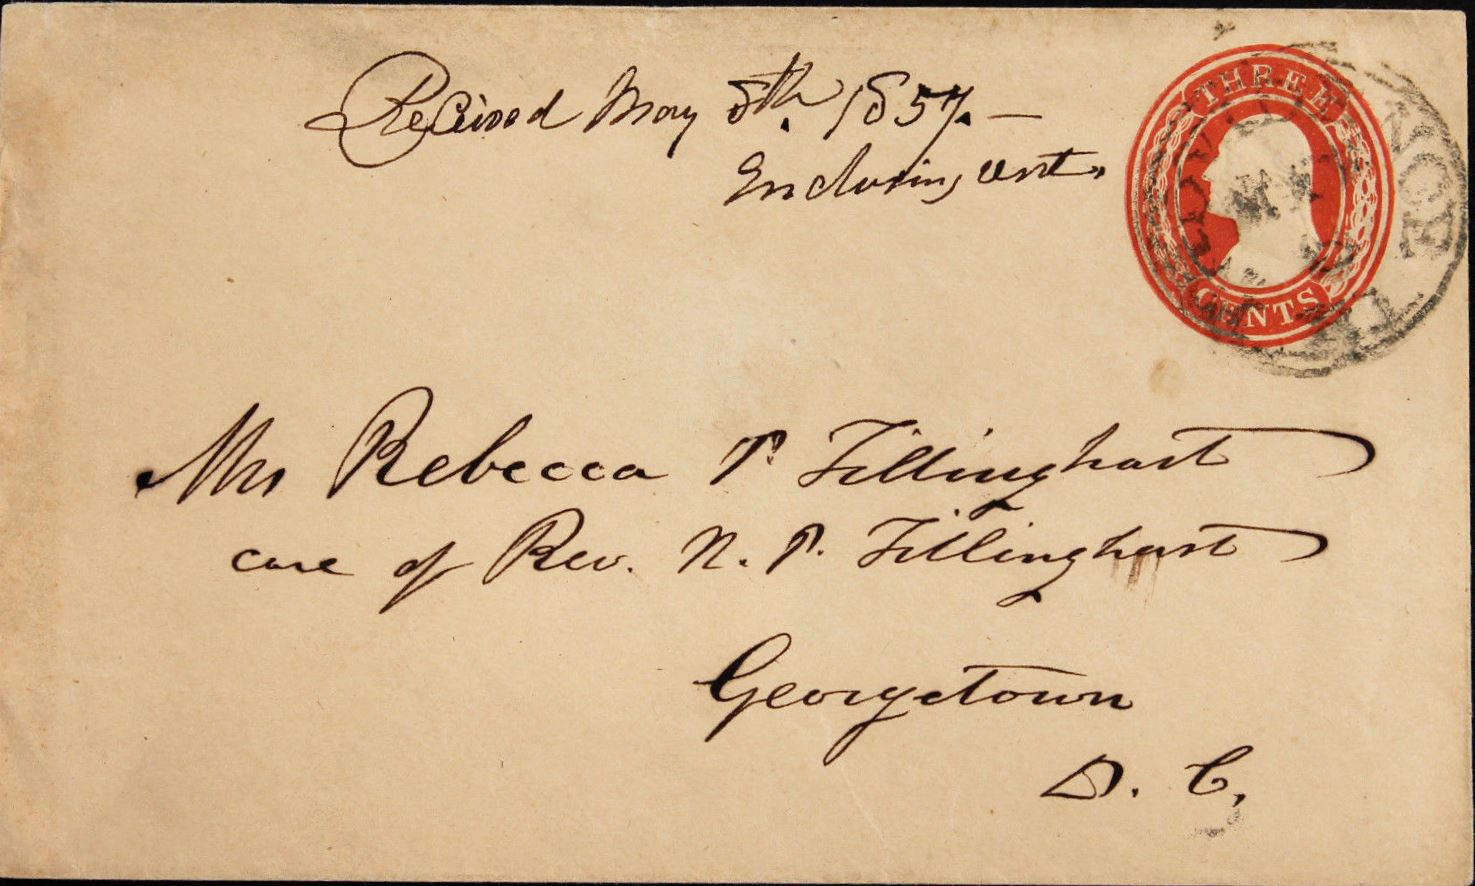 Received May 8th. 1857. —
Enclosing
THREE
CENTS
PROVIDENCE
MAY
R.I.
Mrs Rebecca P. Tillinghast
care of Rev. N. P. Tillinghast
Georgetown
D. C.